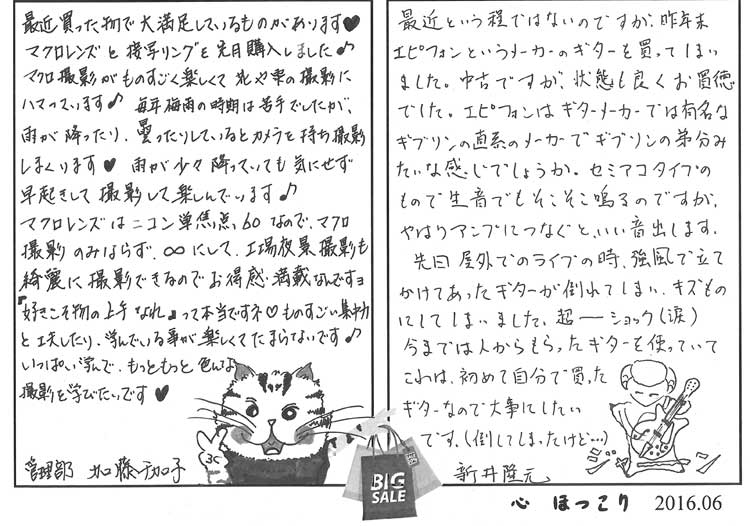 最近買った物で大満足しているものがあります♥
マクロレンズと接写リングを先月購入しました♪
マクロ撮影がものすごく楽しくて花や雫の撮影に
ハマっています♪ 毎年梅雨の時期は苦手でしたが、
雨が降ったり、曇ったりしているとカメラを持ち撮影
しまくります♥ 雨が少々降っていても気にせず
早起きして撮影して楽しんでいます♪
マクロレンズはニコン単焦点60なので、マクロ
撮影のみならず、∞にして、工場夜景撮影も
綺麗に撮影できるのでお得感満載なんですョ
『好きこそ物の上手なれ』って本当ですネ♡ ものすごい集中力
と工夫したり、学んでいる事が楽しくてたまらないです♪
いっぱい学んで、もっともっと色んな
撮影を学びたいです♥
管理部 加藤千加子
最近という程ではないのですが、昨年末
エピフォンというメーカーのギターを買ってしまい
ました。中古ですが、状態も良くお買徳
でした。エピフォンはギターメーカーでは有名な
ギブソンの直系のメーカーでギブソンの弟分み
たいな感じでしょうか。セミアコタイプの
もので生音でもそこそこ鳴るのですが、
やはりアンプにつなぐと、いい音出します。
先日屋外でのライブの時、強風で立て
かけてあったギターが倒れてしまい、キズもの
にしてしまいました、超ーショック(涙)
今までは人からもらったギターを使っていて
これは、初めて自分で買った
ギターなので大事にしたい
です。(倒してしまったけど…)
新井隆元
BIG
SALE
心 ほっこり 2016.06